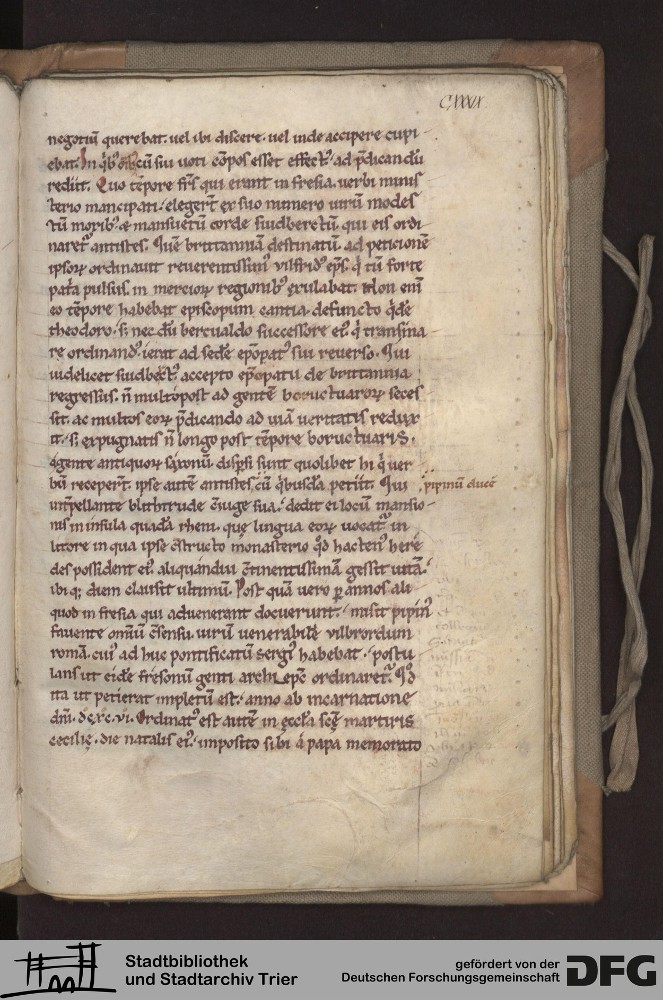 CXXXIX
negotiū querebat. uel ibi discere. uel inde accipere cupi
ebat. In qͥbꝰ oībꝰ cū sui uoti cōpos esset effectꝰ. ad p̄dicandū
rediit. Quo tēpore frs̄ qui erant in fresia. uerbi minis
terio mancipati. elegert̄ ex suo numero uirū modes
tū moribꝰ. ⁊ mansuetū corde suidbertū. qui eis ordi
naret᷑ antistes. Quē brittanniā destinatū. ad peticionē
ipsoꝝ ordinauit reuerentissimꝰ vilfridꝰ ep̄s. qͥ tū forte
patͥa pulsus. in mercioꝝ regionibꝰ exulabat. Non eni
eo tēpore habebat episcopum cantia. defuncto qͥdē
theodoro. s; nec dū bercualdo successore eiꝰ. qͥ transma
re ordinandꝰ. ierat ad sedē ep̄opatꝰ sui reuerso. Qui
uidelicet suidbertꝰ. accepto ep̄opatu de brittannia
regressus. n̄ multopost ad gentē boructuaroꝝ seces
sit. ac multos eoꝝ p̄dicando ad uiā ueritatis redux
it. s; expugnatis n̄ longo post tēpore boructuaris.
a gente antiquoꝝ saxonū. disp̄si sunt quolibet hi qͥ uer
bū recepert̄. ipse autē antistes. cū qͥbusdā petiit. Qui
pipinū ducē
int̄pellante blithtrude c̄iuge sua. dedit ei locū mansio
nis in insula quadā rheni. que lingua eoꝝ uocat᷑ in
litore in qua ipse c̄structo monasterio. qd̄ hactenꝰ here
des possident eiꝰ. aliquandiu c̄tinentissimā gessit uitā.
ibiq; diem clausit ultimū. Post quā uero p annos ali
quod in fresia qui aduenerant docuerunt. misit pipinꝰ
fauente omniū c̄sensu. uirū uenerabilē vilbrordum
romā. cuiꝰ ad huc pontificatū sergiꝰ habebat. postu
lans ut eidē fresonū genti archiep̄c ordinaret᷑. Qd̄
ita ut petierat impletū est. anno ab incarnatione
dn̄i. dc̄. xc. vi. Ordinatꝰ est autē in eccl̄a sc̄e martiris
cecilie. die natalis eiꝰ. imposito sibi a papa memorato
Stadtbibliothek
und Stadtarchiv Trier
gefördert von der
Deutschen Forschungsgemeinschaft
DFG